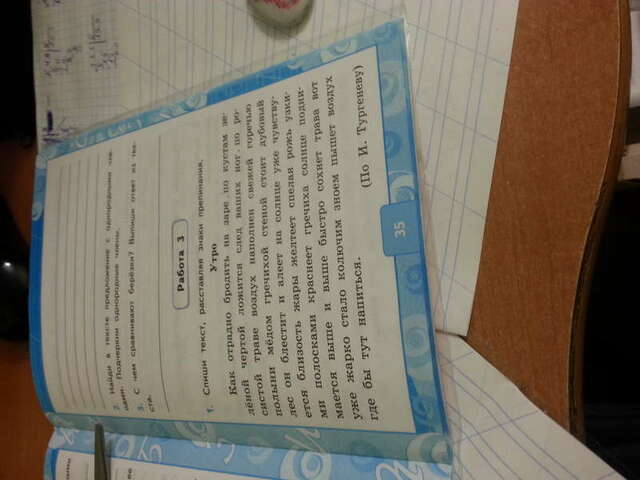 2. Найди в тексте предложение с однородными чле-
нами. Подчеркни однородные члены.
3. С чем сравнивают берёзки? Выпиши ответ из тек-
ста.
Работа 3
1. Спиши текст, расставляя знаки препинания.
Утро
Как отрадно бродить на заре по кустам зе-
лёной чертой ложится след ваших ног по ро-
систой траве воздух наполнен свежей горечью
полыни мёдом гречихой стеной стоит дубовый
лес он блестит и алеет на солнце уже чувству-
ется близость жары желтеет спелая рожь узки-
ми полосками краснеет гречиха солнце подни-
мается выше и выше быстро сохнет трава вот
уже жарко стало колючим зноем пышет воздух
где бы тут напиться.
(По И. Тургеневу)
35